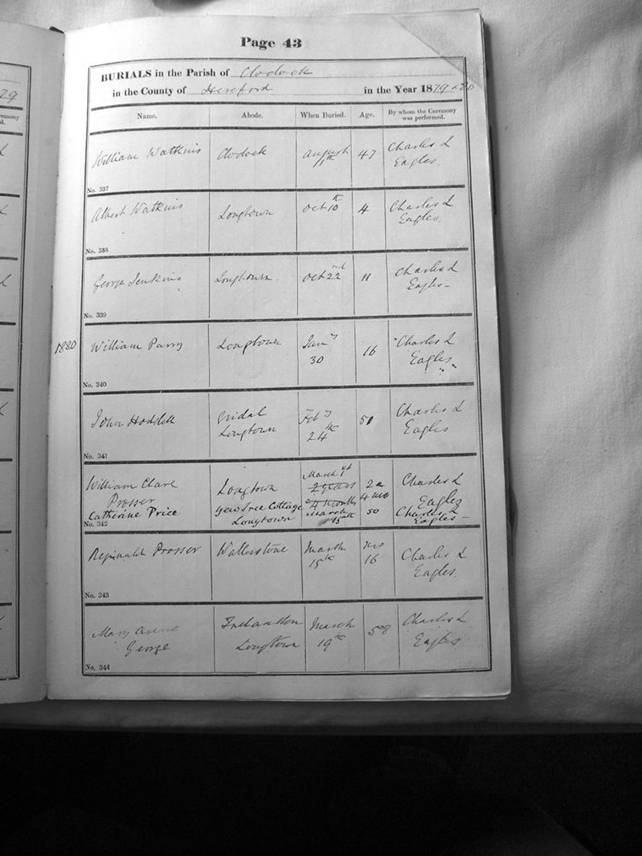 29
Page 43
BURIALS in the Parish of Clodock
in the County of Hereford in the Year 1879 & 80
Name. Abode. When Buried. Age. By whom the Ceremony was performed.
William Watkins Clodock August 47 Charles L
Eagles
No. 337
Albert Watkins Longtown Oct 10th 4 Charles L
Eagles.
No. 338
George Jenkins Longtown Oct 22nd 11 Charles L
Eagles
No. 339
1880 William Parry Longtown Jany 30 16 Charles L
Eagles
No. 340
John Longtown Feby 24th 51 Charles L
Eagles
No. 341
William Clare Longtown March 2 Charles L
Prosser 2 years 4 mo Eagles
4 months
Catherine Price Yew Tree Cottage March 50 Charles L
No. 342 Longtown 15 Eagles
Reginald Prosser Walterstone March 15th 16 Charles L
Eagles.
No. 343
Mary Longtown March 19th 58 Charles L
George Eagles
No. 344